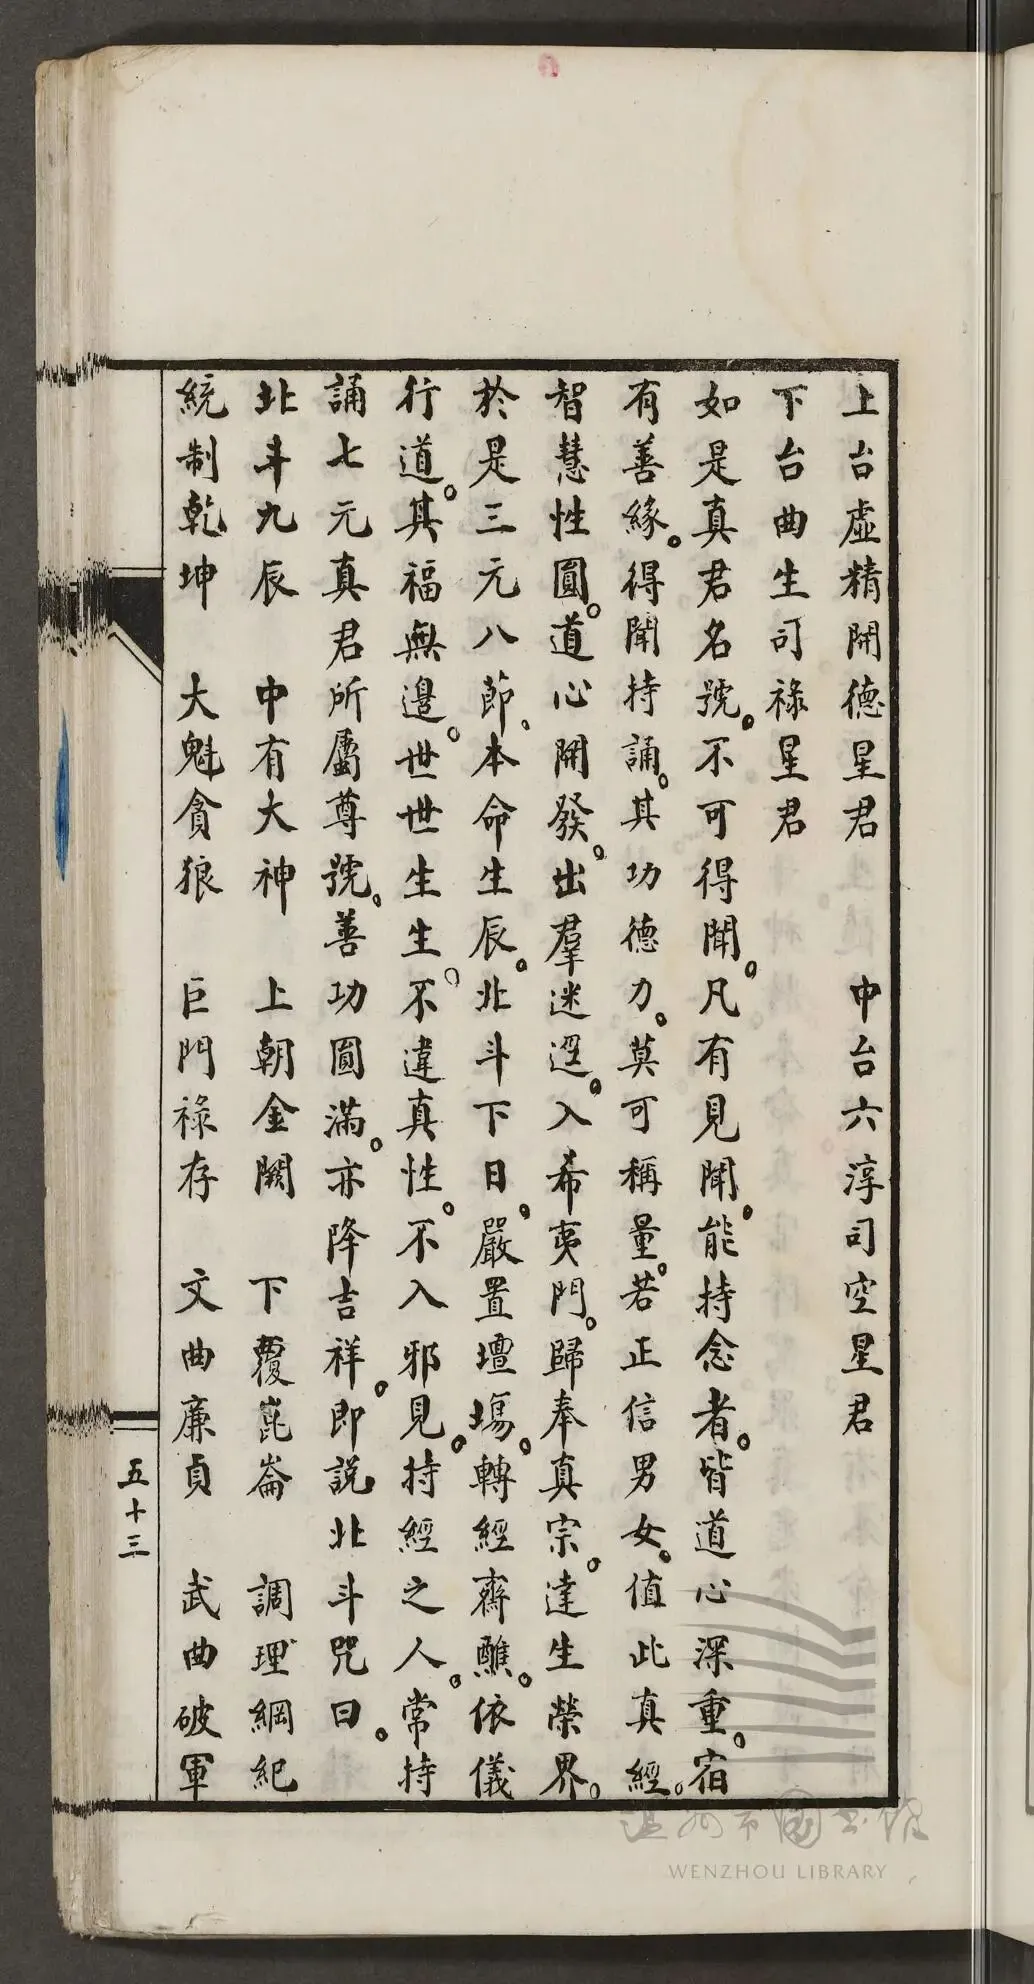 上台虛精開德星君　中台六淳司空星君
下台曲生司祿星君
如是真君名號。不可得聞。凡有見聞。能持念者。皆道心深重。宿
有善緣。得聞持誦。其功德力。莫可稱量。若正信男女。值此真經。
智慧性圓。道心開發。出羣迷逕。入希夷門。歸奉真宗。達生榮界。
於是三元八節、本命生辰。北斗下日。嚴置壇場。轉經齋醮。依儀
行道。其福無邊。世世生生。不違真性。不入邪見。持經之人。常持
誦七元真君所屬尊號。善功圓滿。亦降吉祥。即說北斗咒曰。
北斗九辰　中有大神　上朝金闕　下覆崑崙　調理綱紀
統制乾坤　大魁貪狼　巨門祿存　文曲廉貞　武曲破軍
五十三
WENZHOU LIBRARY